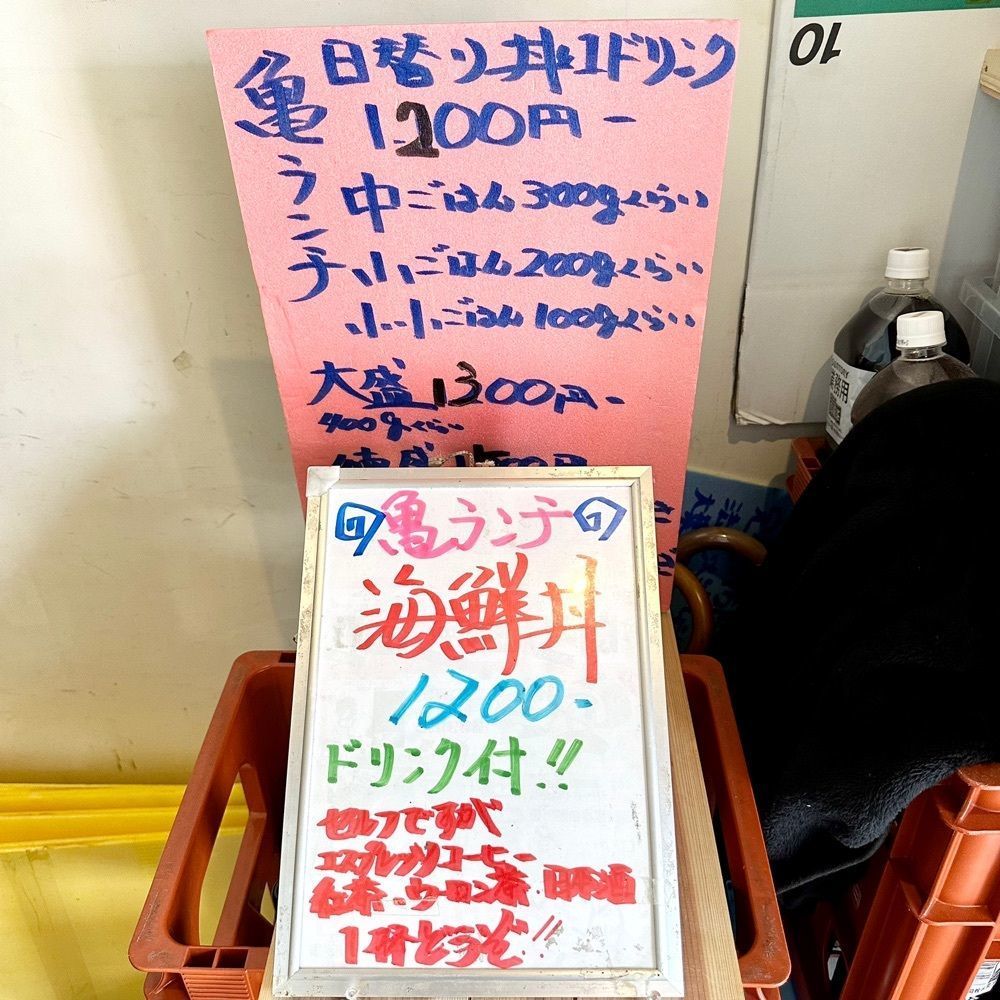 亀ランチ
日替り丼1ドリンク
1.200円-
中ごはん300gくらい
小ごはん200gくらい
小小ごはん100gくらい
大盛1300円-
400gくらい
亀ランチ
海鮮丼
1200-
ドリンク付!!
セルフですが
エスプレッソコーヒー
紅茶・ウーロン茶・日本酒
1杯どうぞ!!
10
業務用